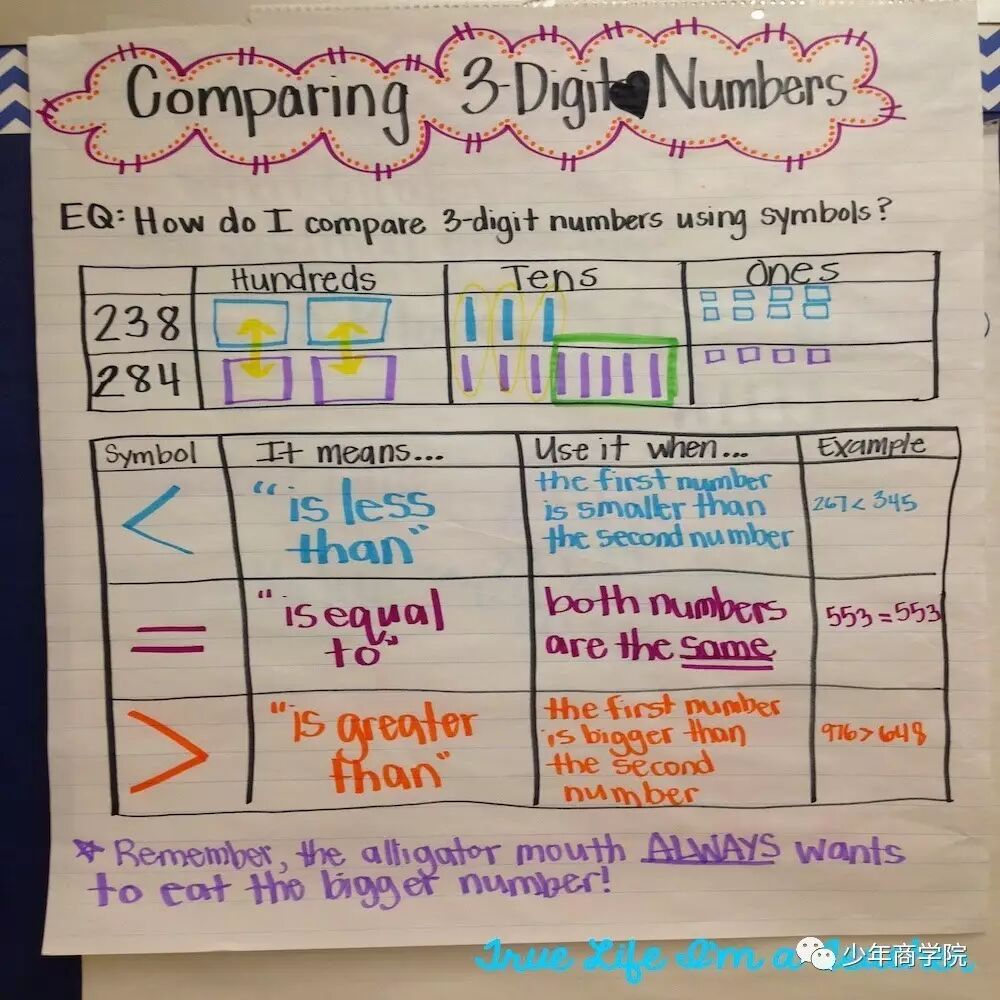 Comparing 3-Digit Numbers
EQ: How do I compare 3-digit numbers using symbols?
Hundreds Tens Ones
238
284
Symbol It means... Use it when... Example
< "is less than" the first number is smaller than the second number 267 < 345
= "is equal to" both numbers are the same 553 = 553
> "is greater than" the first number is bigger than the second number 976 > 648
* Remember, the alligator mouth ALWAYS wants
to eat the bigger number!
True Life I'm a
少年商学院